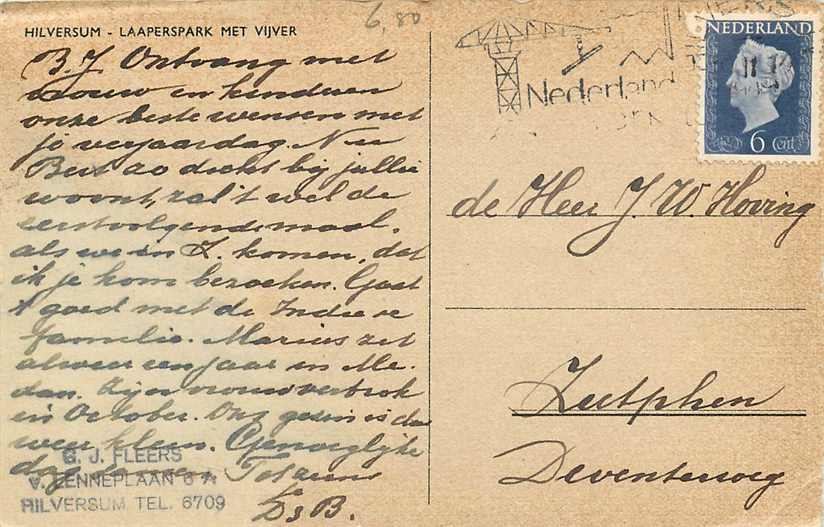 HILVERSUM - LAAPERSPARK MET VIJVER
6,80
B.J. Ontvang met
vrouw en kinderen
onze beste wensen met
je verjaardag. Nu
Bert zo dicht bij jullie
woont, zal 't wel de
eerstvolgende maal,
als we in Z. komen, dat
ik je kom bezoeken. Gaat
't goed met de Indische
familie. Marius zit
alweer een jaar in Me-
dan. Zijn vrouw vertrok
in October. Ons gezin is dus
weer klein. Genoeglijke
dag Tot ziens
Ds B.
G. J. FLEERS
V. LENNEPLAAN 6 A
HILVERSUM TEL. 6709
Nederland
NEDERLAND
6 Cent
de Heer J. W. Hoving
Zutphen
Deventerweg